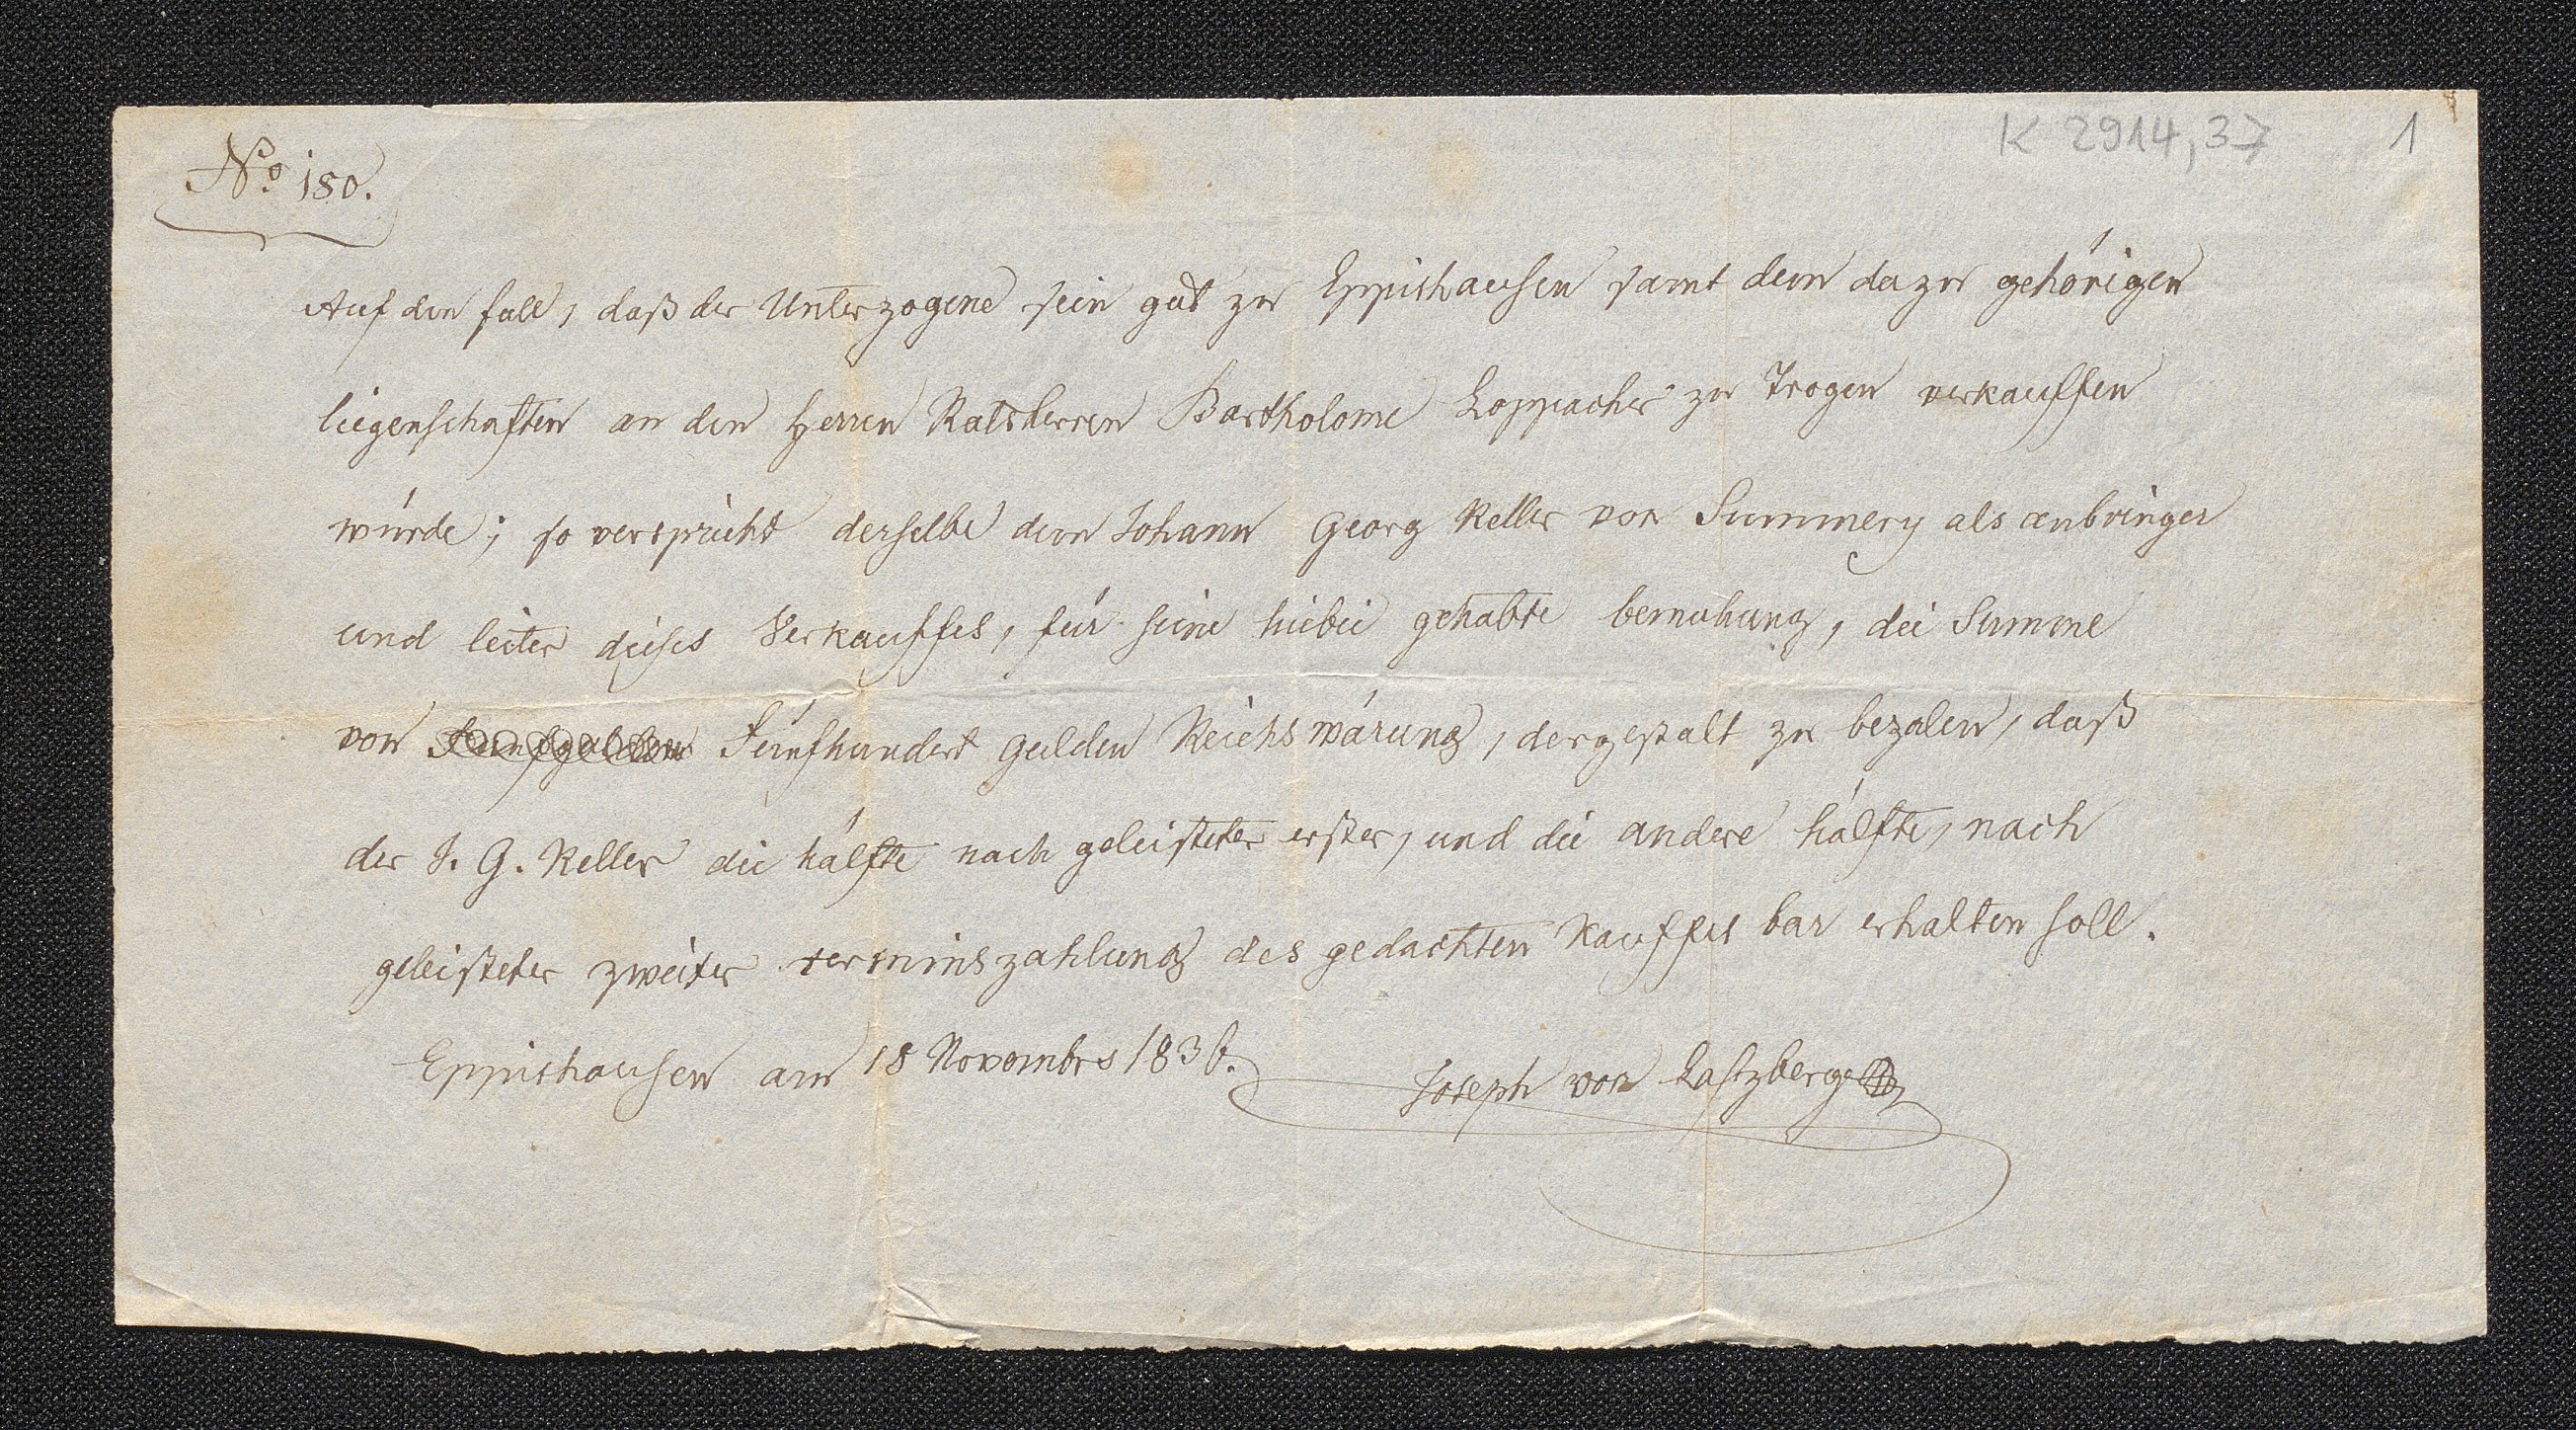 K 2914,37 1
No 180.
Auf den fall, daß der Unterzogene sein gut zu Eppishausen samt den dazu gehörigen
liegenschaften an den Herren Ratsherren Bartholome Loppacher zu Trogen verkauffen
würde; so verspricht derselbe dem Johann Georg Keller von Summery als anbringer
und leiter dieses Verkauffes, für seine hiebei gehabte bemühung, die Summe
von Fünfhundert Gulden Reichswärung, dergestalt zu bezalen, daß
der J. G. Keller die hälfte nach geleisteter erster, und die andere hälfte, nach
geleisteter zweiter terminszahlung des gedachten Kauffes bar erhalten soll.
Eppishausen am 18 Novembrs 1836. Joseph von Laszberg